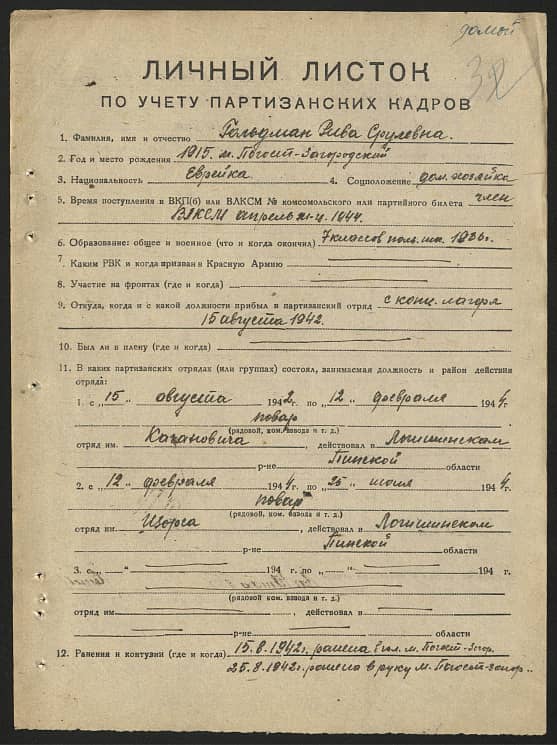 домой
32
ЛИЧНЫЙ ЛИСТОК
ПО УЧЕТУ ПАРТИЗАНСКИХ КАДРОВ
1. Фамилия, имя и отчество Гольдман Рива Срулевна.
2. Год и место рождения 1915. м. Погост-Загородский
3. Национальность Еврейка 4. Соцположение дом. хозяйка
5. Время поступления в ВКП(б) или ВЛКСМ № комсомольского или партийного билета член
ВЛКСМ апрель м-ц. 1944.
6. Образование: общее и военное (что и когда окончил) 7 классов поль. шк. 1936г.
7. Каким РВК и когда призван в Красную Армию
8. Участие на фронтах (где и когда)
9. Откуда, когда и с какой должности прибыл в партизанский отряд с конц. лагеря
15 августа 1942.
10. Был ли в плену (где и когда)
11. В каких партизанских отрядах (или группах) состоял, занимаемая должность и район действия
отряда:
1. с „15„ августа 1942г. по „12„ февраля 1944г.
повар
(рядовой, ком. взвода и т. д.)
отряд им. Кагановича, действовал в Логишинском
р-не Пинской области
2. с „12„ февраля 1944г. по „25„ июля 1944г.
повар
(рядовой, ком. взвода и т. д.)
отряд им. Щорса, действовал в Логишинском
р-не Пинской области
3. с „ “ 194 г. по „ “ 194 г.
(рядовой, ком. взвода и т. д.)
отряд им. , действовал в
р-не области
12. Ранения и контузии (где и когда) 15.8.1942г. ранена в гол. м. Погост-Загор.
25.8.1942г. ранена в руку м. Погост-Загор..